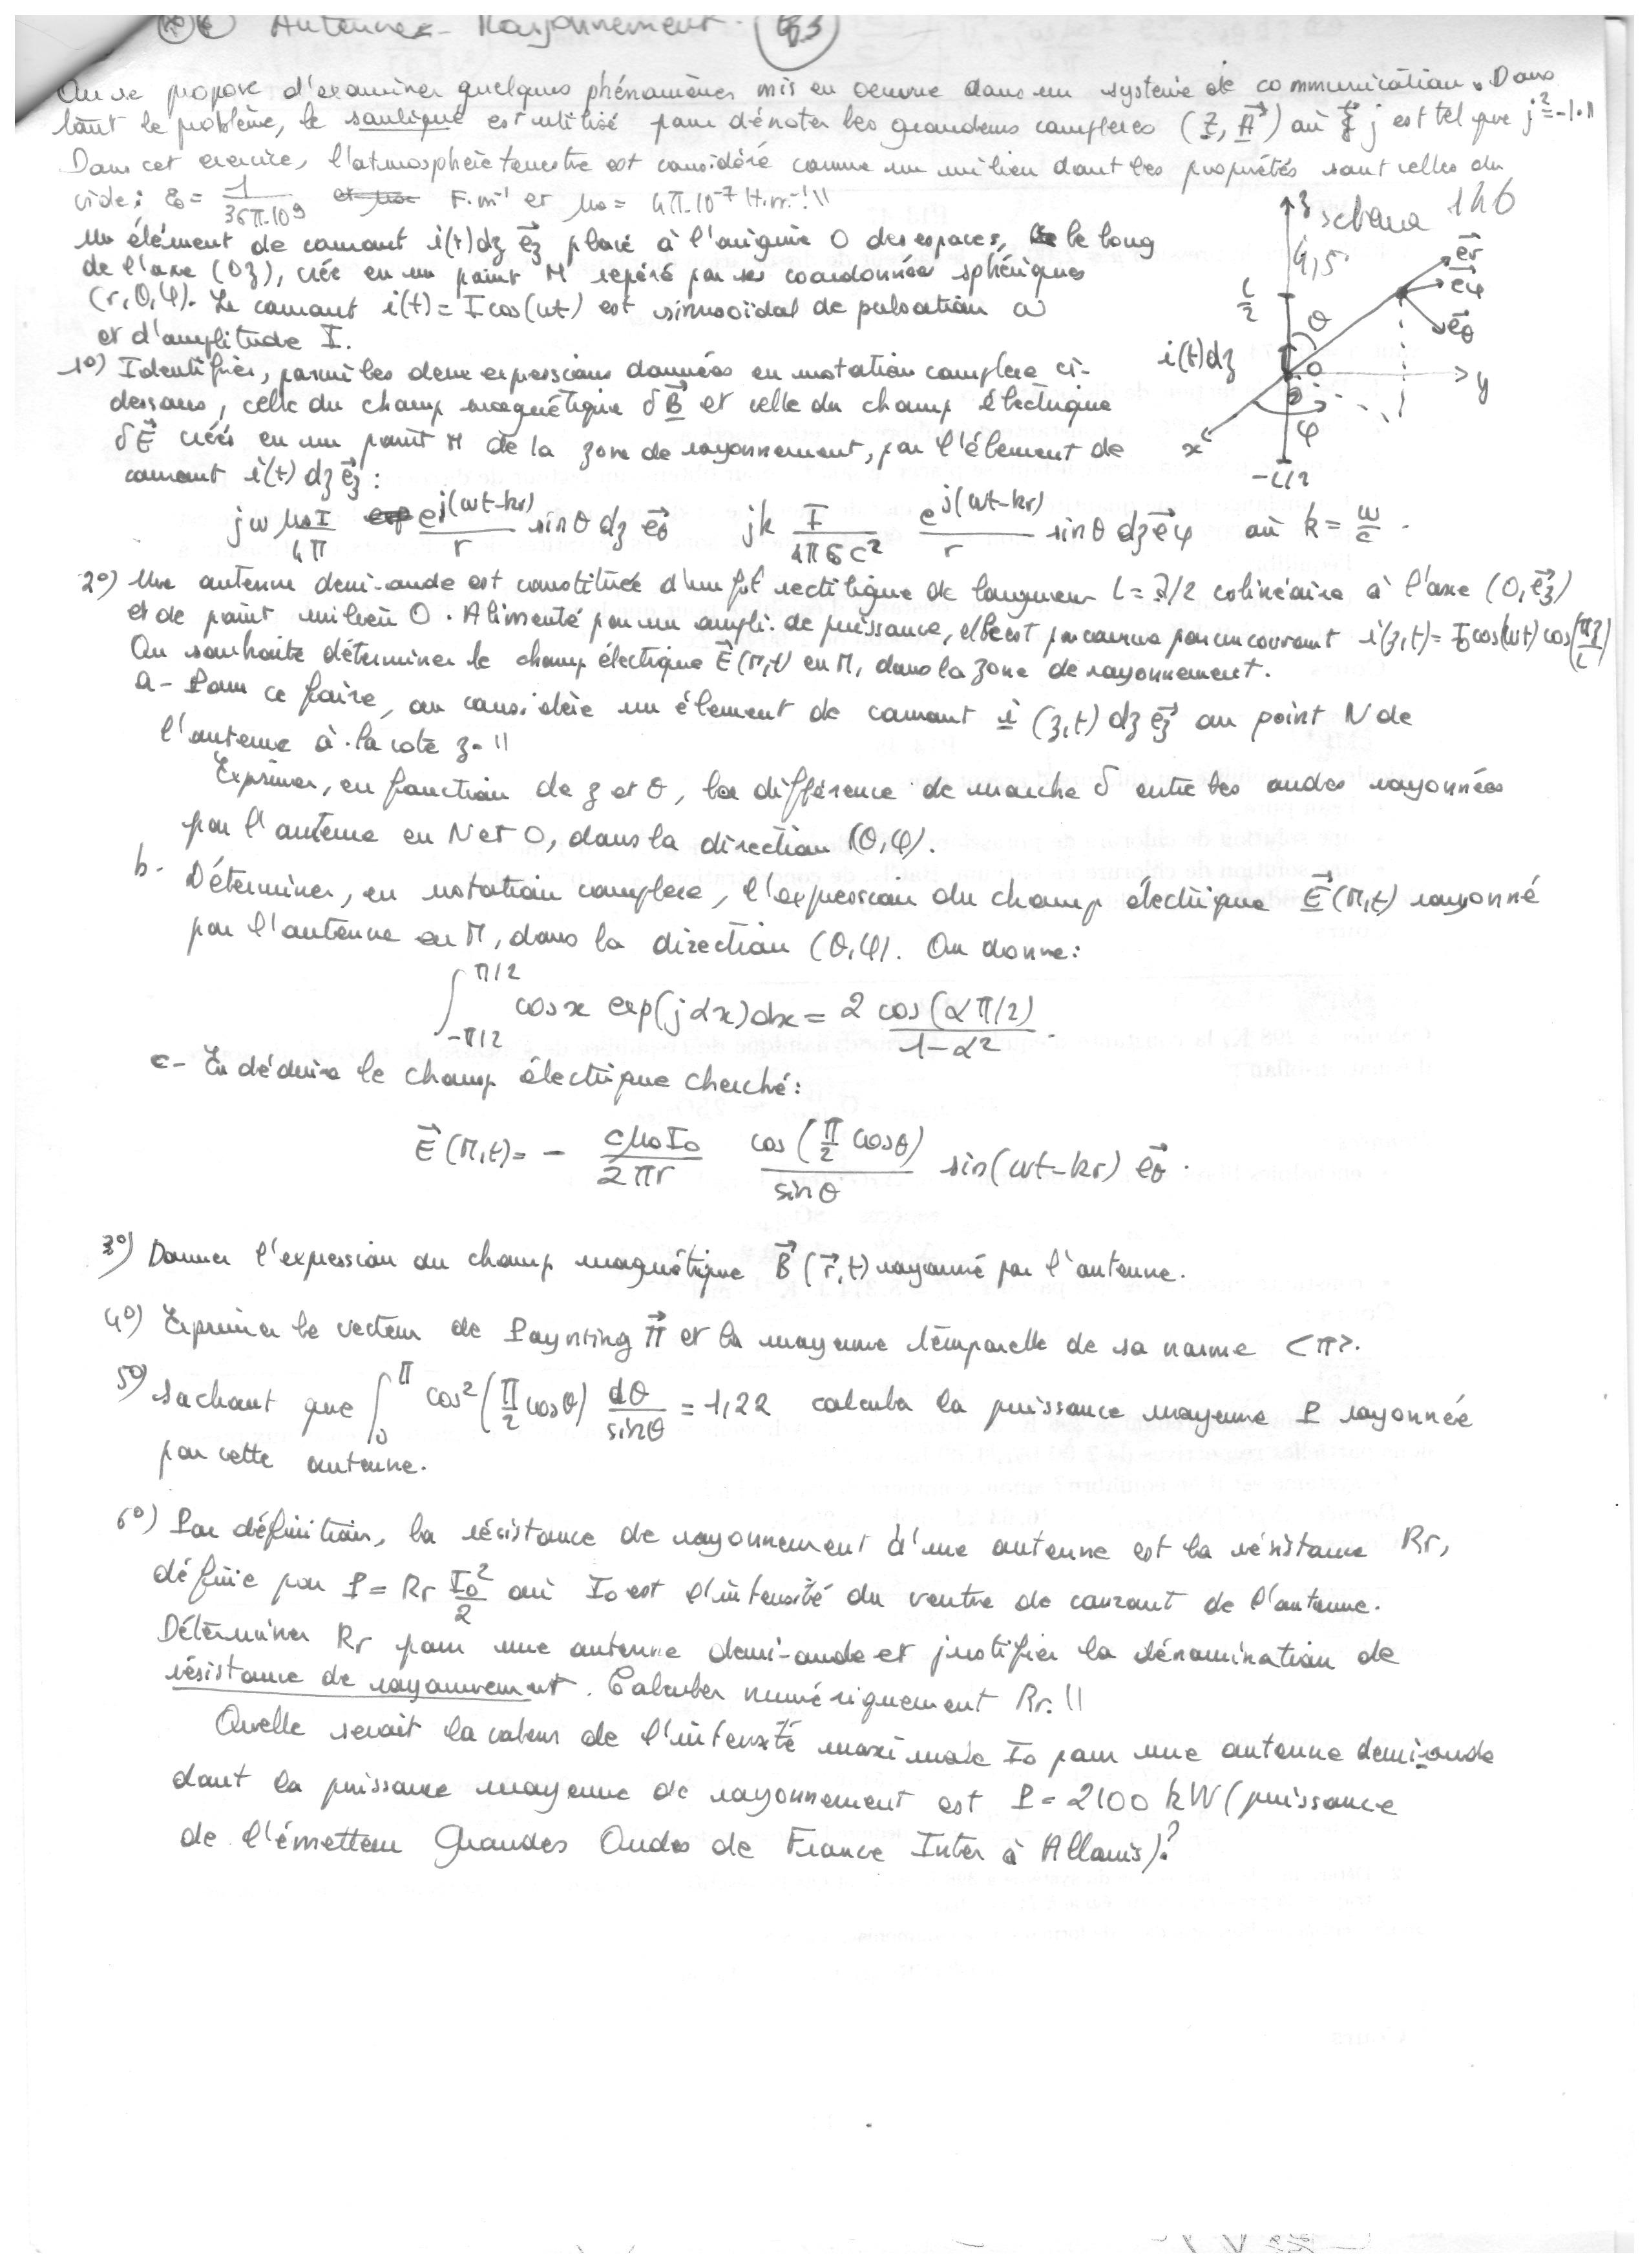 Antennes - Rayonnement. 63
On se propose d'examiner quelques phénomènes mis en oeuvre dans un système de communication. Dans
tout le problème, le souligné est utilisé pour dénoter les grandeurs complexes (Z, A⃗) où j est tel que j²=-1.
Dans cet exercice, l'atmosphère terrestre est considéré comme un milieu dont les propriétés sont celles du
vide: ε₀ = 1/(36π.10⁹) F.m⁻¹ et μ₀ = 4π.10⁻⁷ H.m⁻¹. \\
schéma 1h6
4,5
Un élément de courant i(t)dz e⃗z placé à l'origine O des espaces, le long
de l'axe (Oz), crée en un point M repéré par ses coordonnées sphériques
(r, θ, φ). Le courant i(t) = I cos(ωt) est sinusoïdal de pulsation ω
et d'amplitude I.
z e⃗r e⃗φ e⃗θ L/2 θ i(t)dz O y x φ -L/2
1°) Identifier, parmi les deux expressions données en notation complexe ci-
dessous, celle du champ magnétique δB⃗ et celle du champ électrique
δE⃗ créés en un point M de la zone de rayonnement, par l'élément de
courant i(t) dz e⃗z :
jω μ₀I/4π e^{j(ωt-kr)}/r sinθ dz e⃗θ jk I/(4πε₀c²) e^{j(ωt-kr)}/r sinθ dz e⃗φ où k = ω/c .
2°) Une antenne demi-onde est constituée d'un fil rectiligne de longueur L = λ/2 colinéaire à l'axe (O, e⃗z)
et de point milieu O. Alimenté par un ampli. de puissance, elle est parcourue par un courant i(z,t) = I₀ cos(ωt) cos(πz/L)
On souhaite déterminer le champ électrique E⃗(M,t) en M, dans la zone de rayonnement.
a- Pour ce faire, on considère un élément de courant i(z,t) dz e⃗z au point N de
l'antenne à la cote z. \\
Exprimer, en fonction de z et θ, la différence de marche δ entre les ondes rayonnées
par l'antenne en N et O, dans la direction (θ,φ).
b- Déterminer, en notation complexe, l'expression du champ électrique E⃗(M,t) rayonné
par l'antenne en M, dans la direction (θ,φ). On donne:
∫_{-π/2}^{π/2} cosx exp(jαx)dx = 2 cos(απ/2)/(1-α²) .
c- En déduire le champ électrique cherché:
E⃗(M,t) = - cμ₀I₀/(2πr) cos(π/2 cosθ)/sinθ sin(ωt-kr) e⃗θ .
3°) Donner l'expression du champ magnétique B⃗(r⃗,t) rayonné par l'antenne.
4°) Exprimer le vecteur de Poynting Π⃗ et la moyenne temporelle de sa norme <π>.
5°) Sachant que ∫₀^π cos²(π/2 cosθ) dθ/sinθ = 1,22 calculer la puissance moyenne P rayonnée
par cette antenne.
6°) Par définition, la résistance de rayonnement d'une antenne est la résistance Rr,
définie par P = Rr I₀²/2 où I₀ est l'intensité du ventre de courant de l'antenne.
Déterminer Rr pour une antenne demi-onde et justifier la dénomination de
résistance de rayonnement. Calculer numériquement Rr. \\
Quelle serait la valeur de l'intensité maximale I₀ pour une antenne demi-onde
dont la puissance moyenne de rayonnement est P = 2100 kW (puissance
de l'émetteur Grandes Ondes de France Inter à Allouis)?